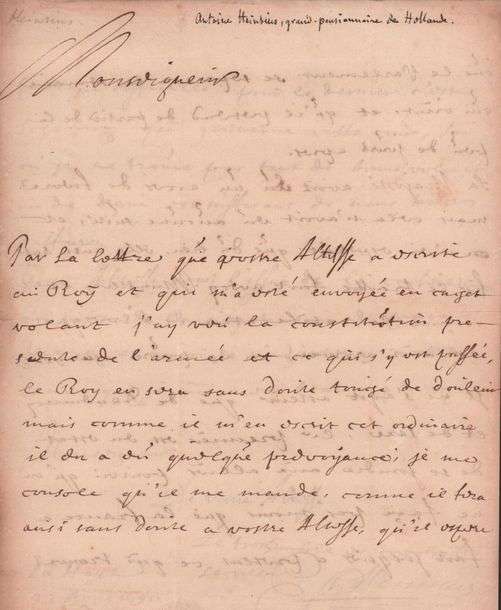 Heinsius.
Antoine Heinsius, grand-pensionnaire de Hollande.
Monseigneur
Par la lettre que vostre Altesse a escrite
au Roy et qui m'a esté envoyée en caget
volant j'ay veu la constitution pre-
sente de l'armée et ce qui s'y est passé,
le Roy en sera sans doute touché de douleur
mais comme il m'en escrit cet ordinaire
il en a eu quelque prevoyance, je me
console qu'il me mande, comme il fera
aussi sans doute a vostre Altesse, qu'il espere